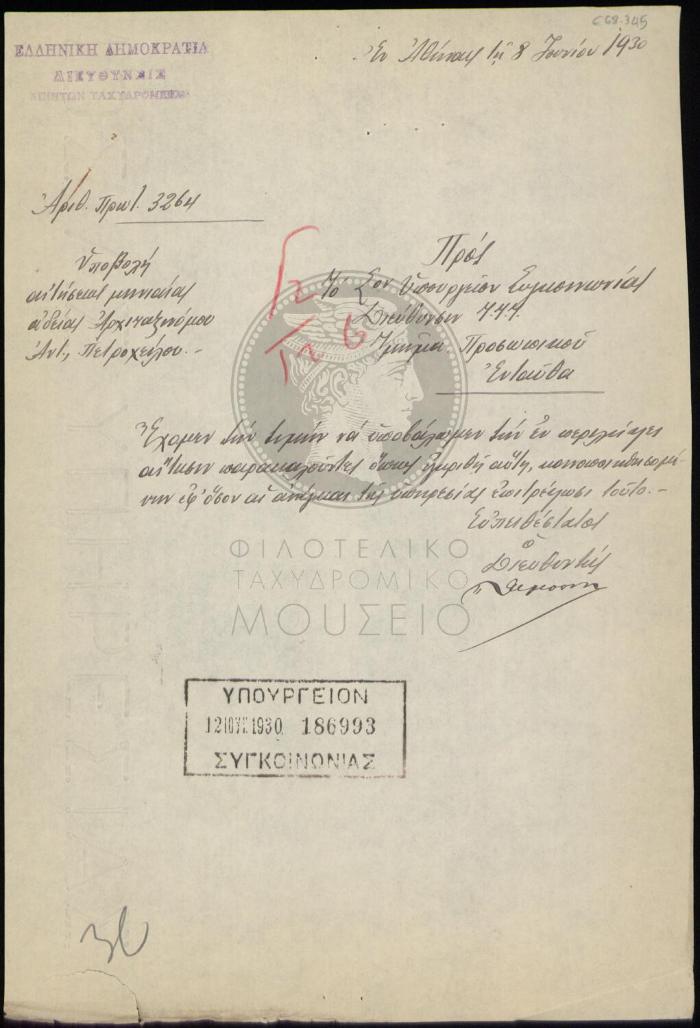 C68-345
ΕΛΛΗΝΙΚΗ ΔΗΜΟΚΡΑΤΙΑ
ΔΙΕΥΘΥΝΣΙΣ
ΚΙΝΗΤΩΝ ΤΑΧΥΔΡΟΜΕΙΩΝ
Ἐν Ἀθήναις τῇ 8 Ἰουνίου 1930
Ἀριθ. Πρωτ. 3264
Ὑποβολή
αἰτήσεως μηνιαίας
ἀδείας Ἀρχιταξινόμου
Ἀντ. Πετροχείλου.-
Πρός
Τὸ Σον Ὑπουργεῖον Συγκοινωνίας
Διεύθυνσιν ΤΤΤ.
Τμῆμα Προσωπικοῦ
Ἐνταῦθα
Ἔχομεν τὴν τιμὴν νὰ ὑποβάλωμεν τὴν ἐν περιλήψει
αἴτησιν παρακαλοῦντες ὅπως ἐγκριθῇ αὕτη,
ἐφ' ὅσον αἱ ἀνάγκαι τῆς ὑπηρεσίας ἐπιτρέψωσι τοῦτο.-
Εὐπειθέστατος
ὁ
Διευθυντής
ΦΙΛΟΤΕΛΙΚΟ
ΤΑΧΥΔΡΟΜΙΚΟ
ΜΟΥΣΕΙΟ
ΥΠΟΥΡΓΕΙΟΝ
12 ΙΟΥΝ. 1930 186993
ΣΥΓΚΟΙΝΩΝΙΑΣ